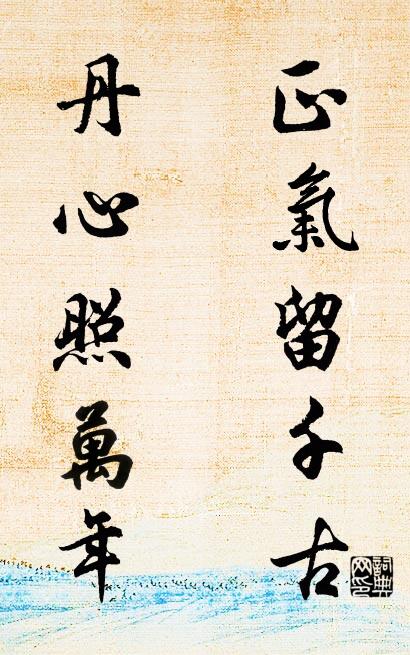 正氣留千古
丹心照萬年
詞典
网印